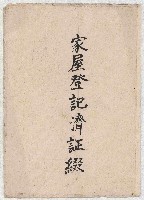 家屋登記済証綴